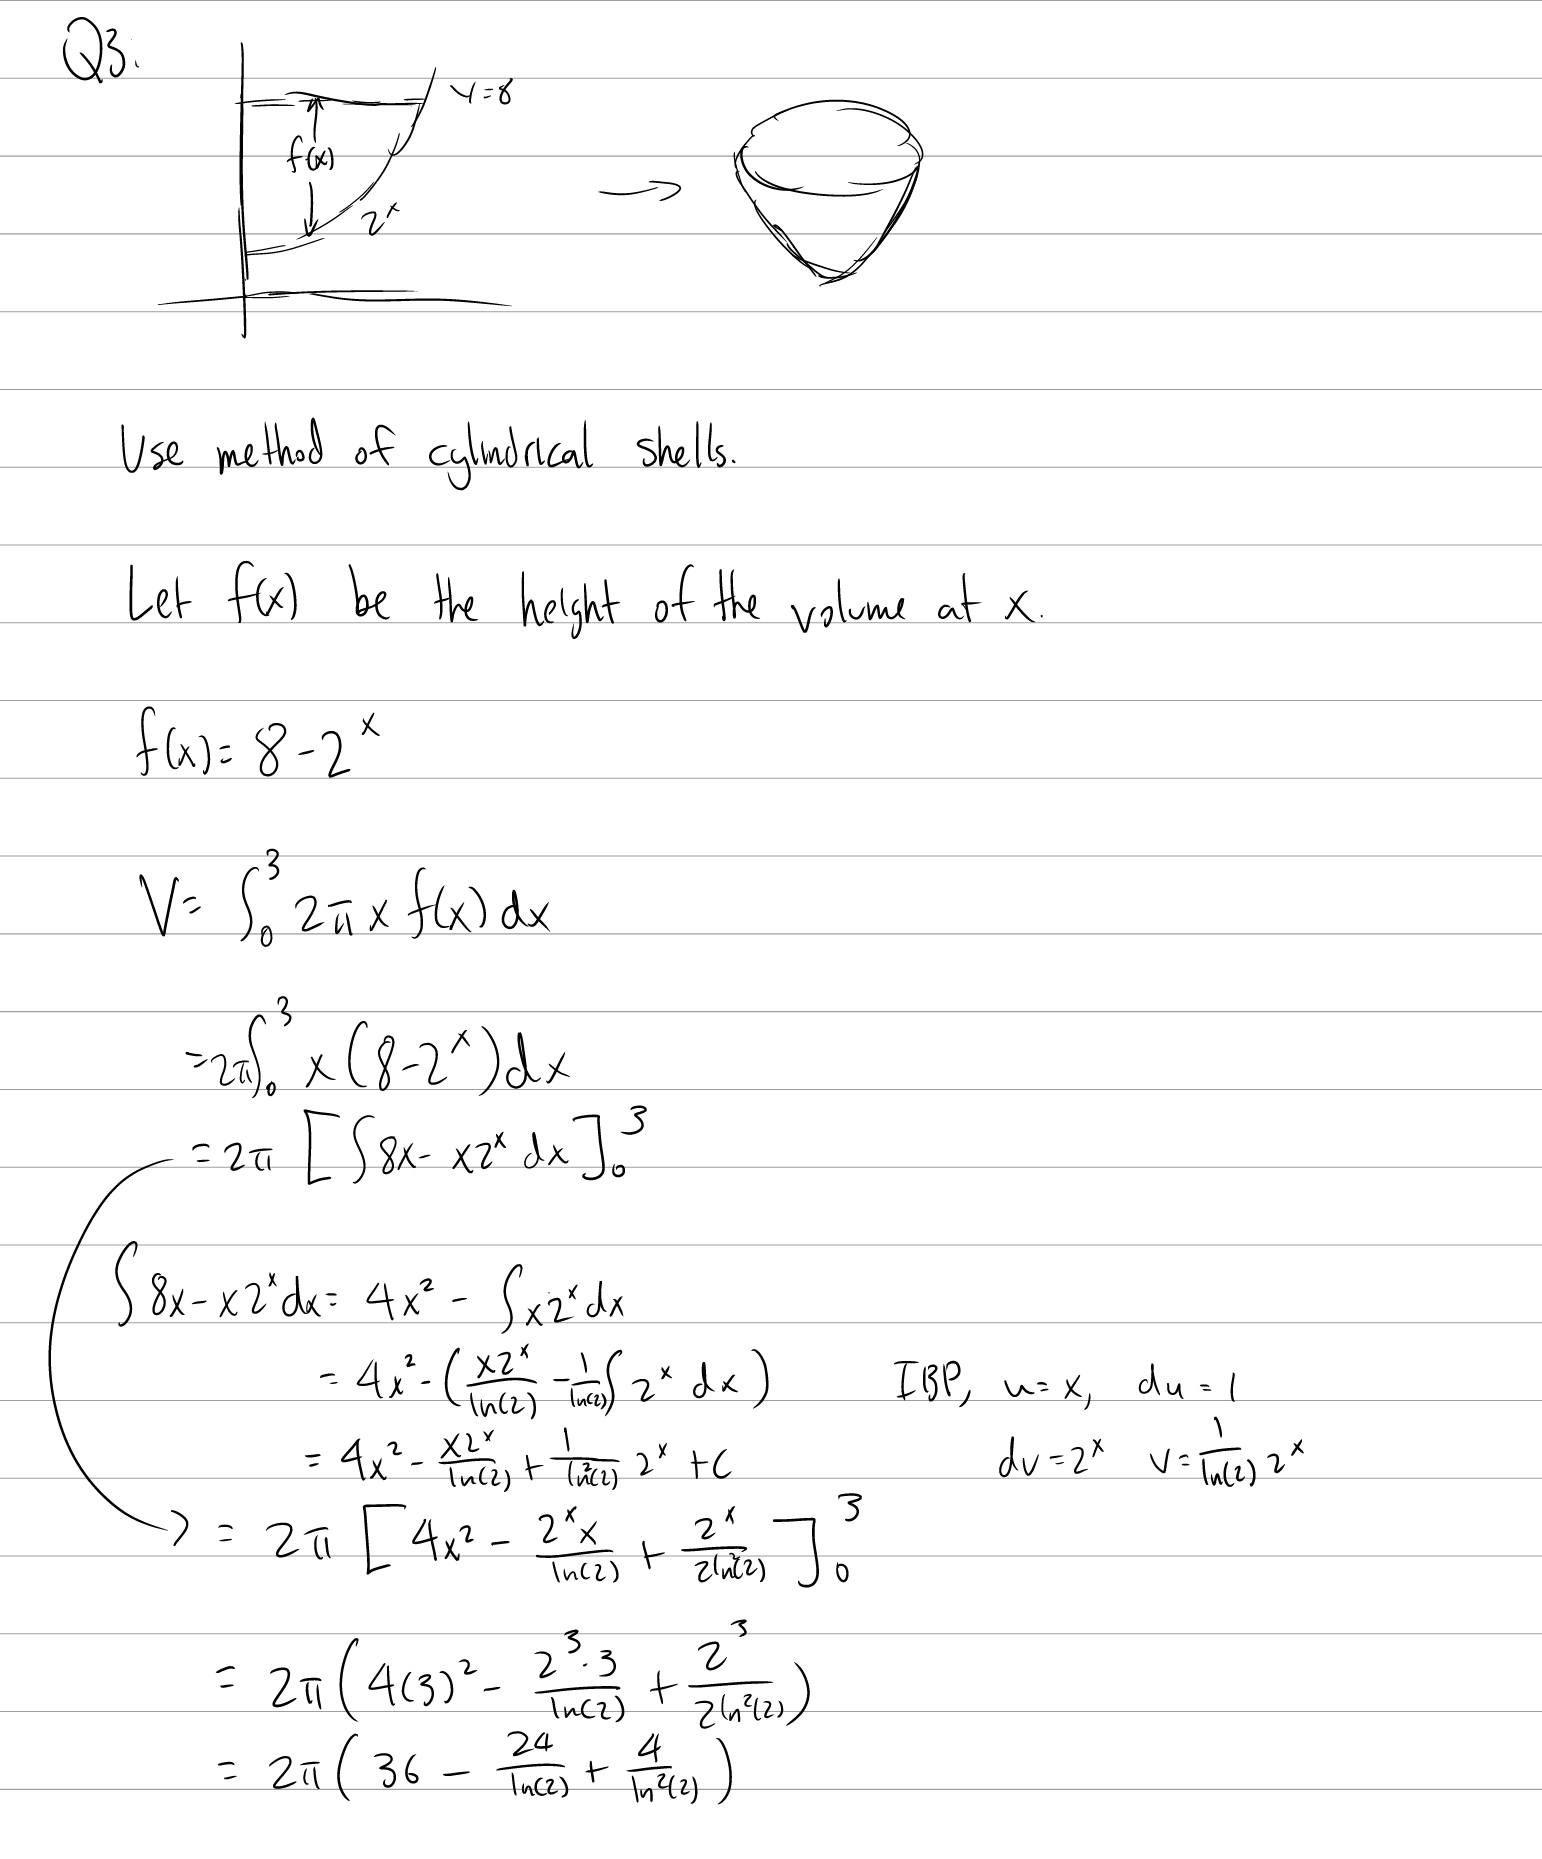 Q3.
y=8
f(x)
2^x
Use method of cylindrical shells.
Let f(x) be the height of the volume at x.
f(x)= 8-2^x
V= ∫_0^3 2π x f(x) dx
=2π∫_0^3 x(8-2^x)dx
= 2π [∫8x- x2^x dx]_0^3
∫8x-x2^x dx= 4x^2 - ∫x2^x dx
= 4x^2-(x2^x/ln(2) - 1/ln(2) ∫2^x dx) IBP, u=x, du=1
= 4x^2 - x2^x/ln(2) + 1/ln^2(2) 2^x +C dv=2^x v= 1/ln(2) 2^x
= 2π [4x^2 - 2^x x/ln(2) + 2^x/2ln^2(2)]_0^3
= 2π(4(3)^2 - 2^3·3/ln(2) + 2^3/2ln^2(2))
= 2π(36 - 24/ln(2) + 4/ln^2(2))